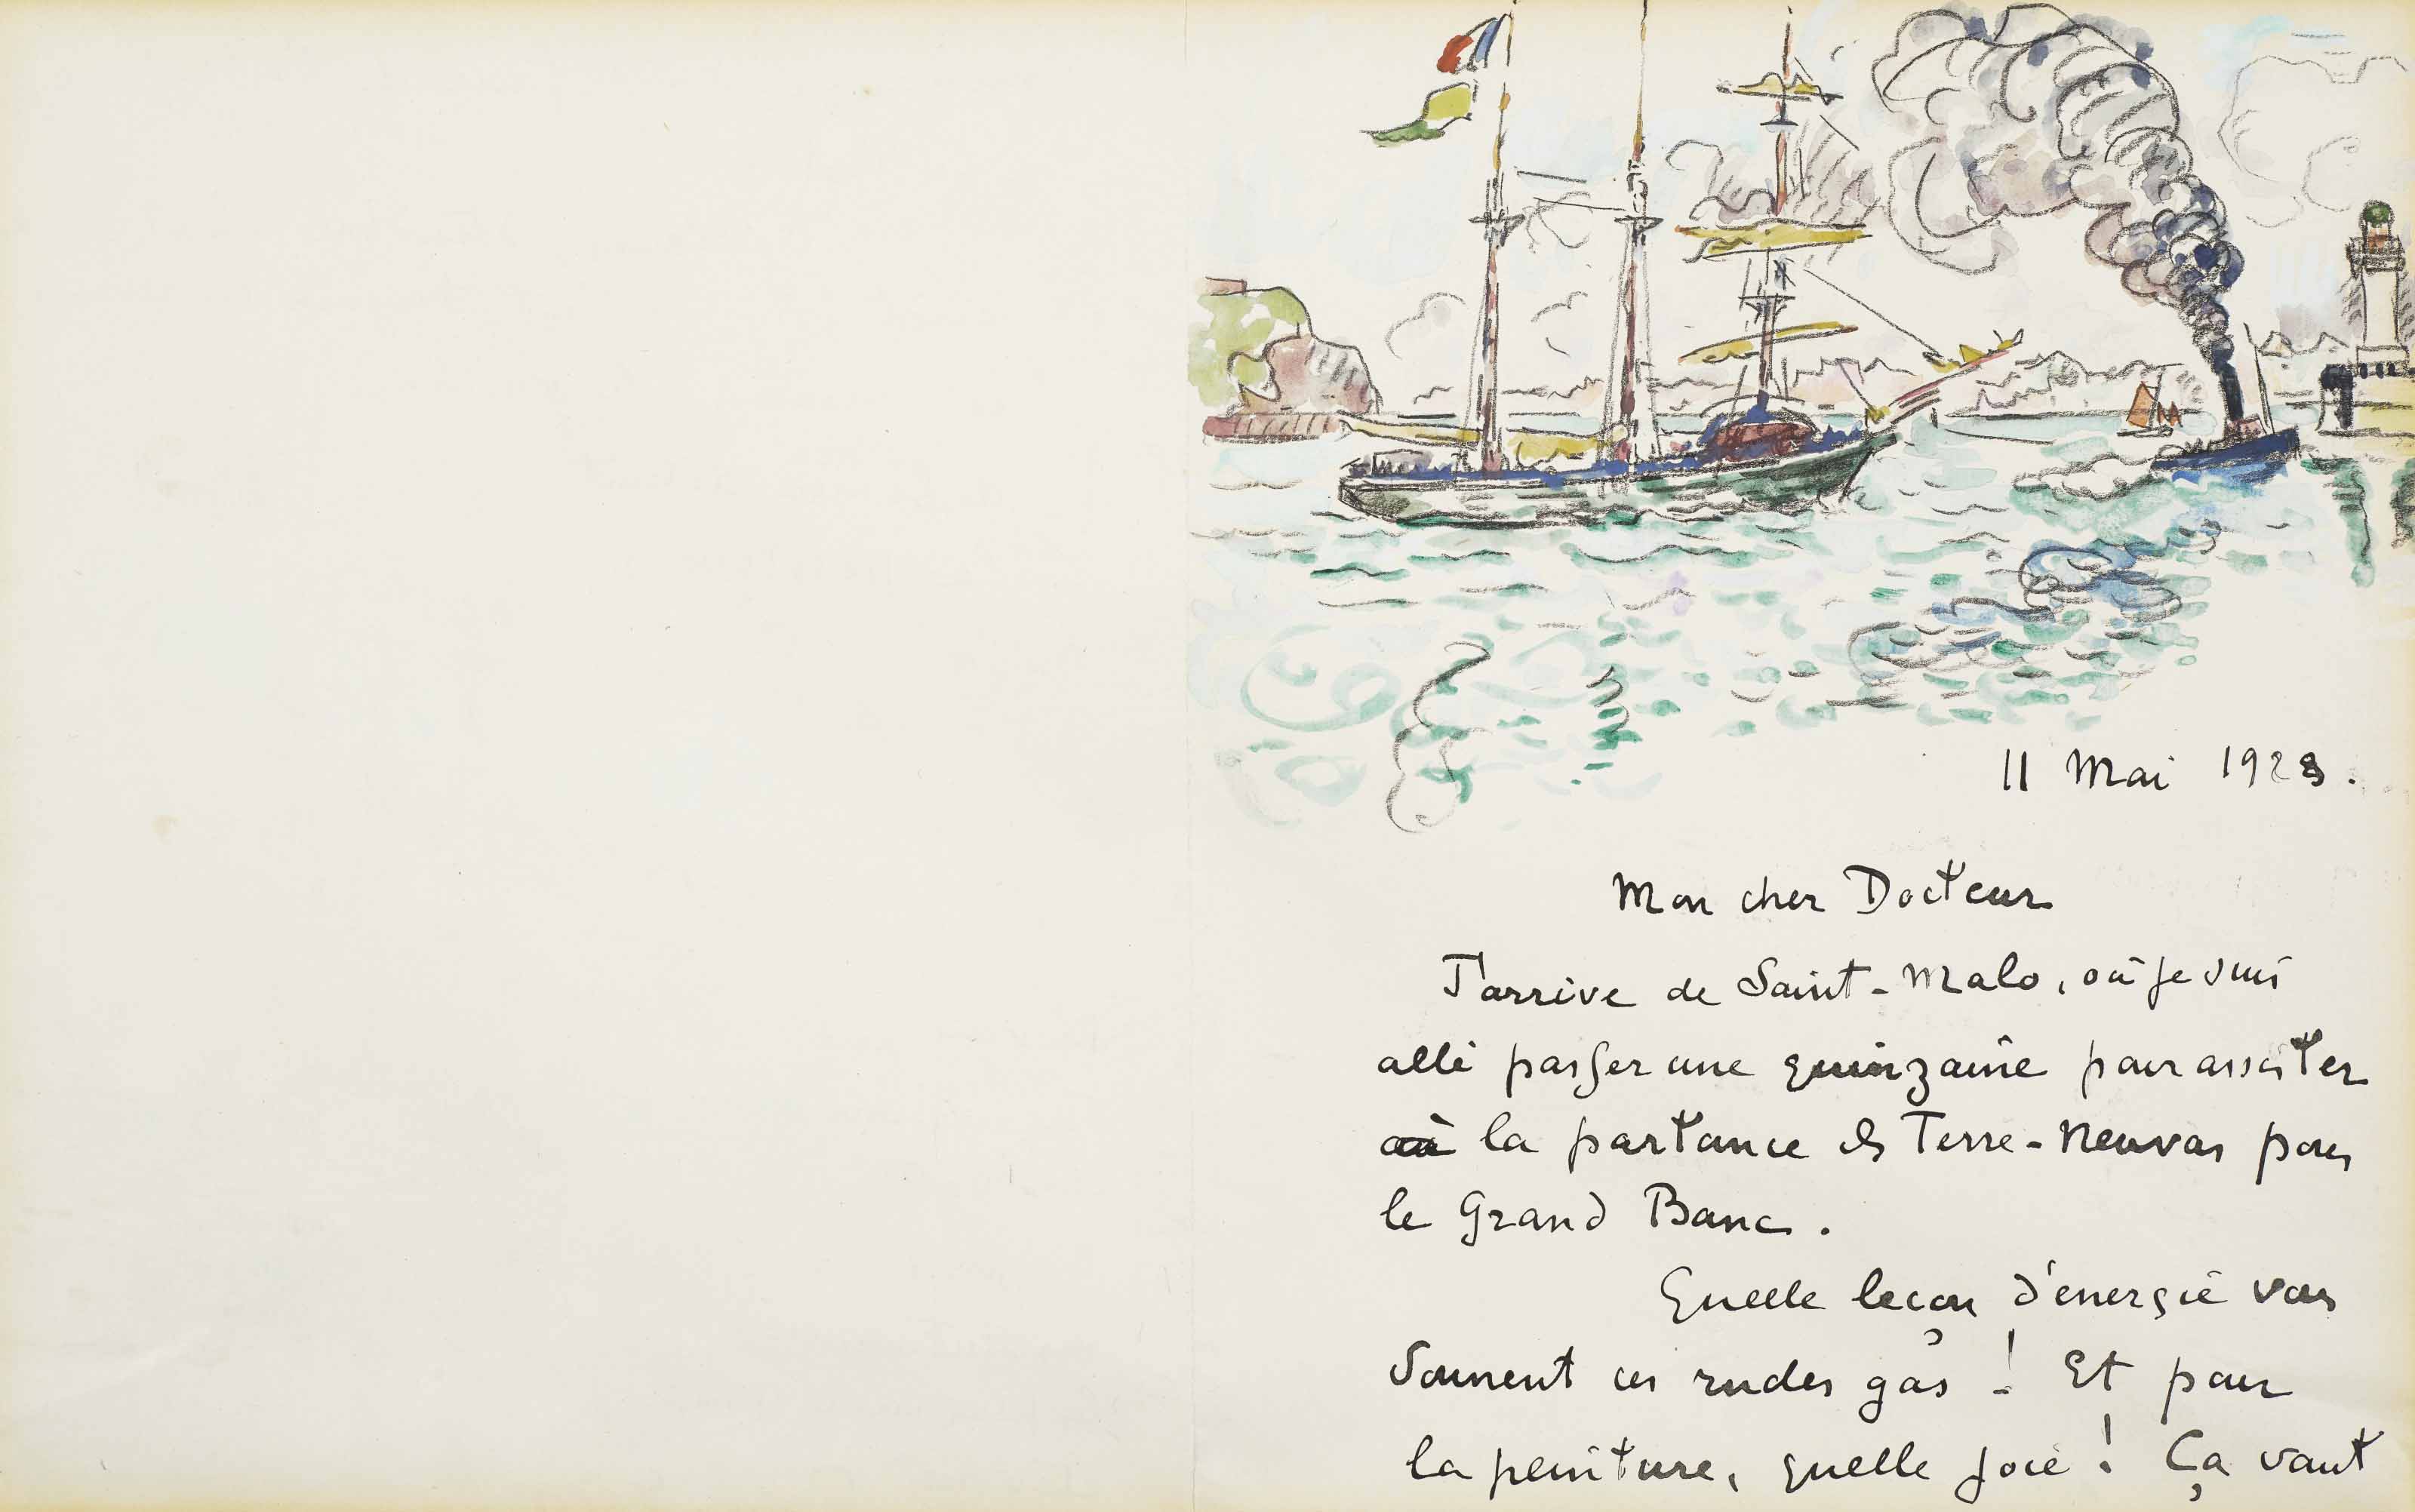 11 Mai 1928.
Mon cher Docteur
J'arrive de Saint-Malo, où je suis
allé passer une quinzaine pour assister
à la partance des Terre-Neuvas pour
le Grand Banc.
Quelle leçon d'énergie vous
donnent ces rudes gas ! Et pour
la peinture, quelle joie ! Ça vaut